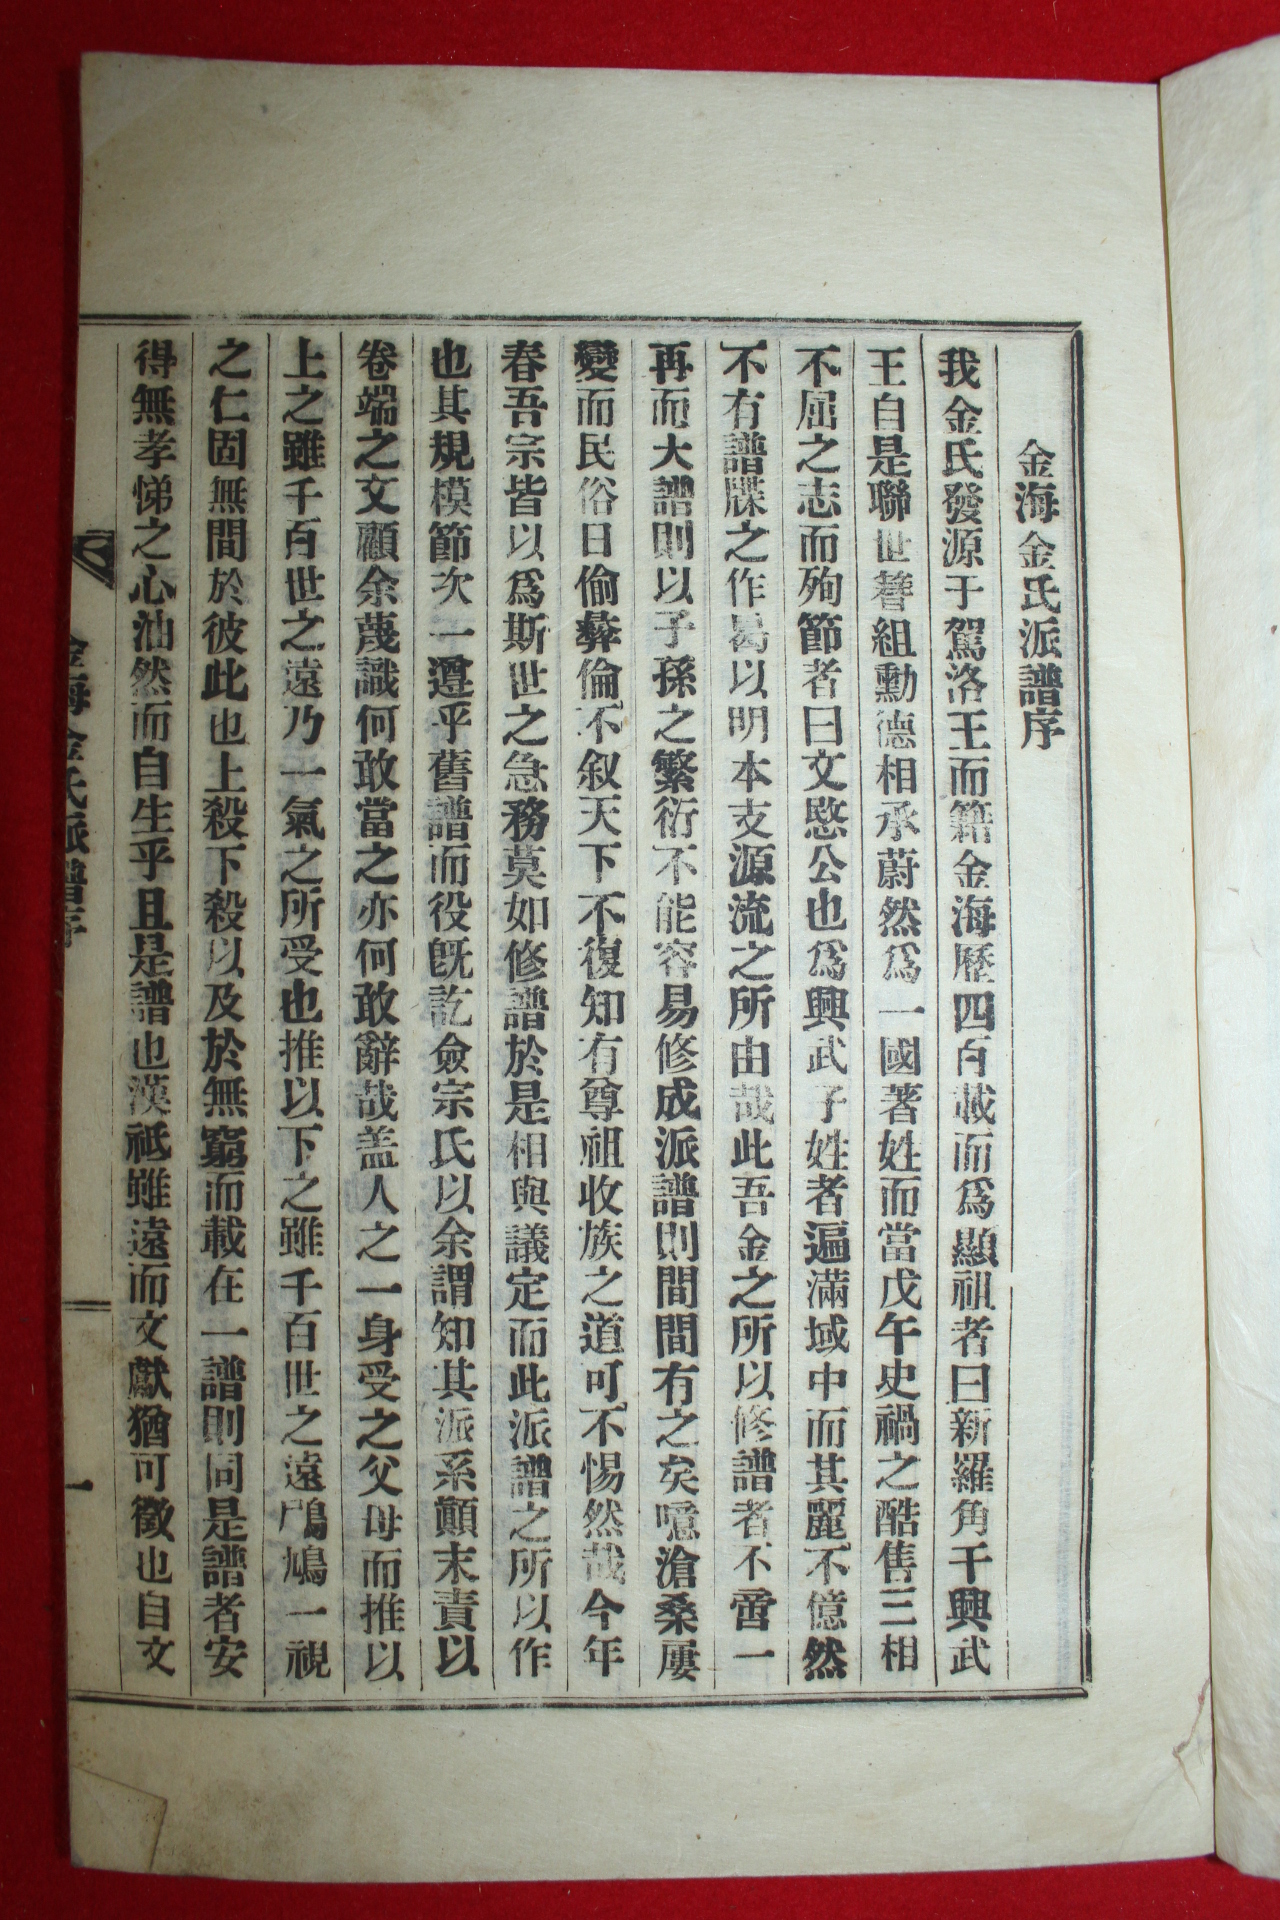 金海金氏派譜序
我金氏發源于駕洛王而籍金海歷四百載而爲顯祖者曰新羅角干興武
王自是聯世簪組勳德相承蔚然爲一國著姓而當戊午史禍之酷隻三相
不屈之志而殉節者曰文愍公也爲興武子姓者遍滿域中而其麗不億然
不有譜牒之作曷以明本支源流之所由哉此吾金之所以修譜者不啻一
再而大譜則以子孫之繁衍不能容易修成派譜則間間有之矣噫滄桑屢
變而民俗日偷彝倫不叙天下不復知有尊祖收族之道可不惕然哉今年
春吾宗皆以爲斯世之急務莫如修譜於是相與議定而此派譜之所以作
也其規模節次一遵乎舊譜而役旣訖僉宗氏以余謂知其派系顚末責以
卷端之文顧余蔑識何敢當之亦何敢辭哉盖人之一身受之父母而推以
上之雖千百世之遠乃一氣之所受也推以下之雖千百世之遠鳲鳩一視
之仁固無間於彼此也上殺下殺以及於無窮而載在一譜則同是譜者安
得無孝悌之心油然而自生乎且是譜也漢祗雖遠而文獻猶可徵也自文
金海金氏派譜序
一